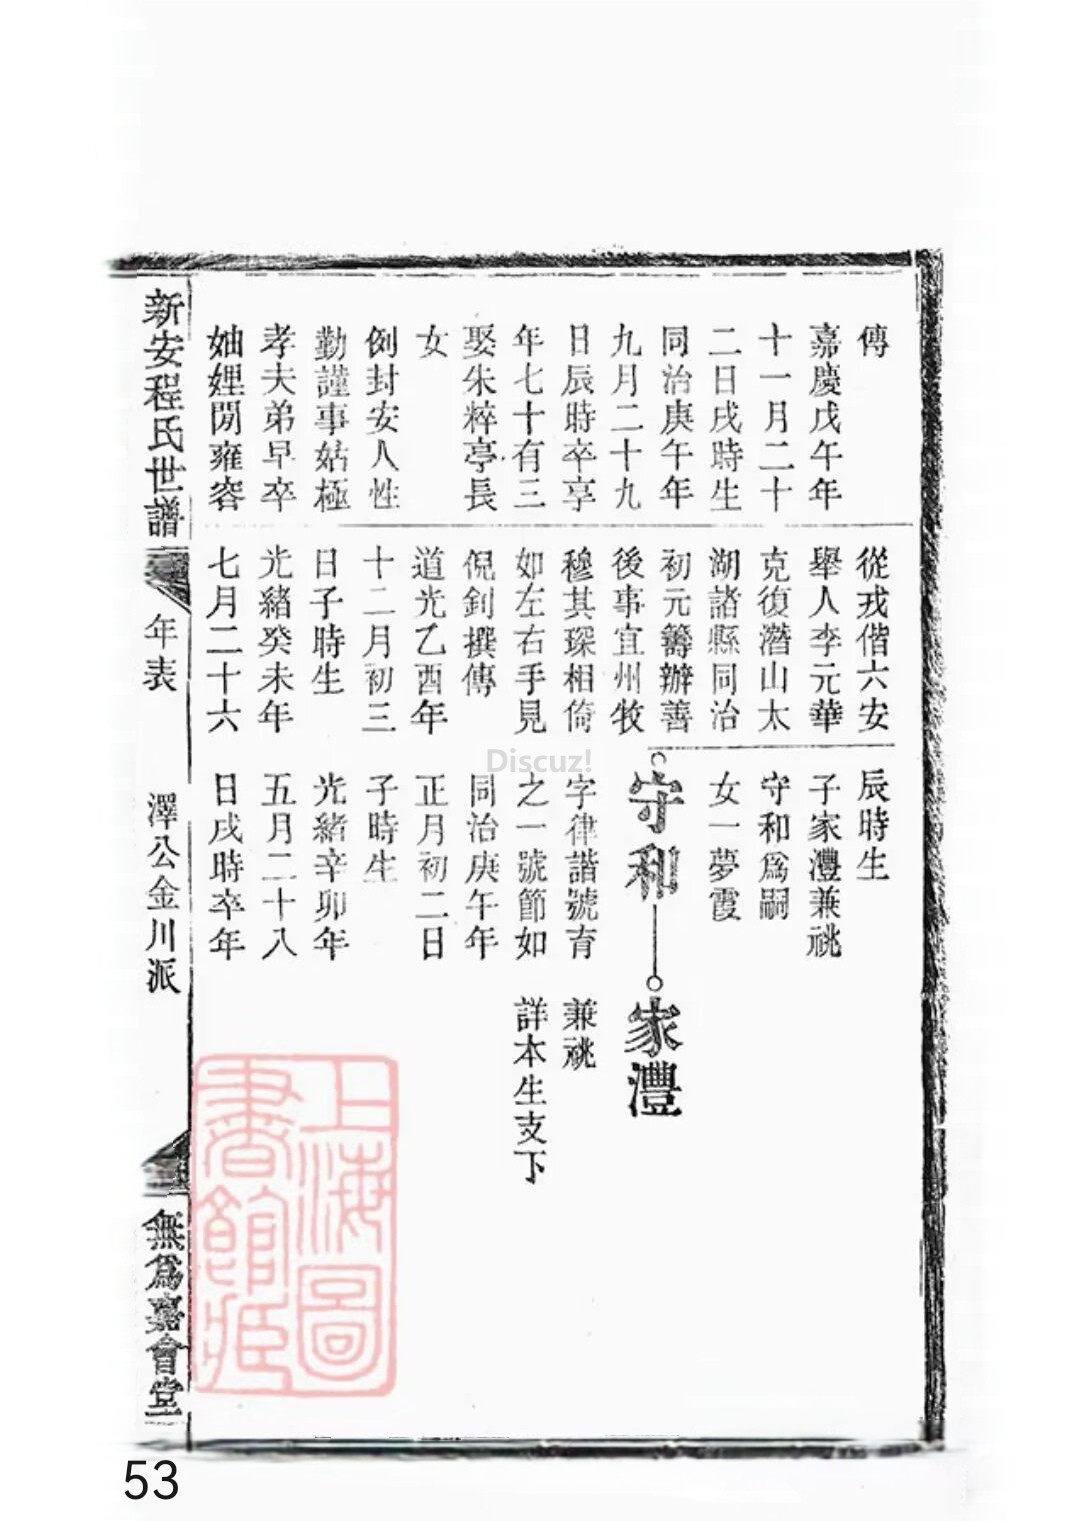 傳
嘉慶戊午年
十一月二十
二日戌時生
同治庚午年
九月二十九
日辰時卒享
年七十有三
娶朱粹亭長
女
例封安人性
勤謹事姑極
孝夫弟早卒
妯娌閒雍容
從戎偕六安
舉人李元華
克復潛山太
湖諸縣同治
初元籌辦善
後事宜州牧
穆其琛相倚
如左右手見
倪釗撰傳
道光乙酉年
十二月初三
日子時生
光緒癸未年
七月二十六
辰時生
子家灃兼祧
守和爲嗣
女一夢霞
守和
字律諧號育
之一號節如
同治庚午年
正月初二日
子時生
光緒辛卯年
五月二十八
日戌時卒年
家灃
兼祧
詳本生支下
新安程氏世譜
年表
澤公金川派
無爲嘉會堂
上海圖
書館藏
Discuz!
53